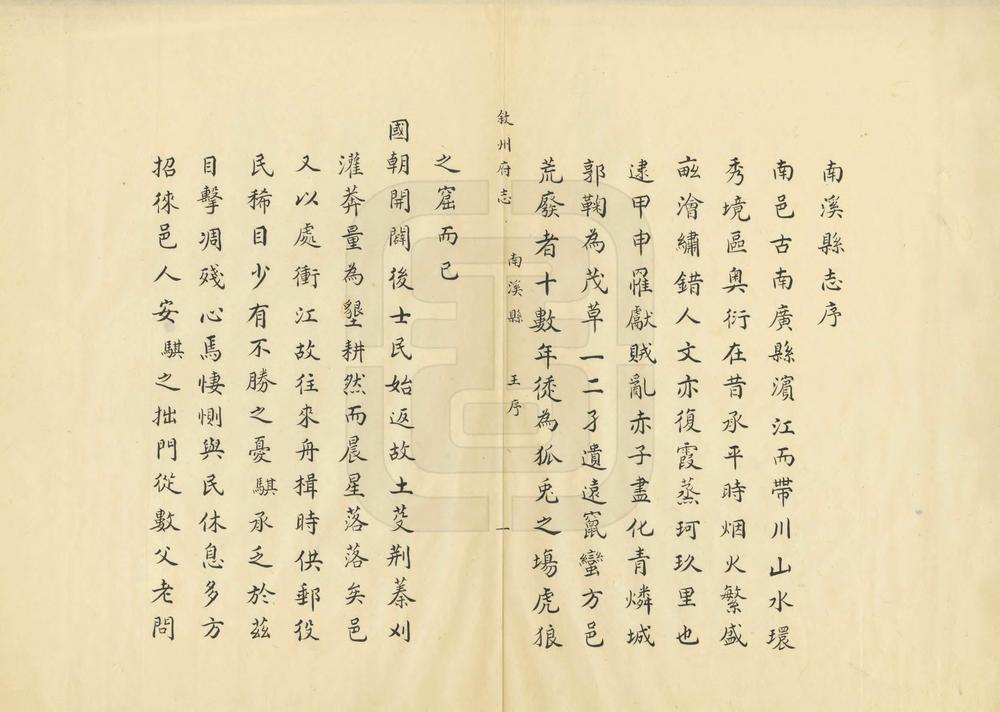 南溪縣志序
南邑古南廣縣濵江而帶川山水環
秀境區奥衍在昔承平時烟火繁盛
畝澮繡錯人文亦復霞蒸珂玖里也
逮甲申罹獻賊亂赤子盡化青燐城
郭鞠為茂草一二孑遺遠竄蠻方邑
荒廢者十數年徒為狐兎之塲虎狼
敘州府志 南溪縣 王序 一
之窟而已
國朝開闢後士民始返故土芟荆蓁刈
灌莽量為墾耕然而晨星落落矣邑
又以處衝江故往來舟楫時供郵役
民稀目少有不勝之憂騏承乏於茲
目擊凋殘心焉悽惻與民休息多方
招徠邑人安騏之拙門從數父老問